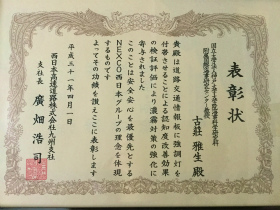 表彰状
国立大学法人神戸大学大学院海事科学研究科
附属国際海事研究センター教授
古莊雅生殿
貴殿は道路交通情報板に強調灯を
付帯させることによる認知度改善効果
の検証評価により濃霧対策の強化に
寄与されました
このことは安全安心を最優先とする
NEXCO西日本グループの理念を体現
するものです
よってその功績を讃えここに表彰します
平成三十一年四月一日
西日本高速道路株式会社九州支社
支社長 廣畑浩司